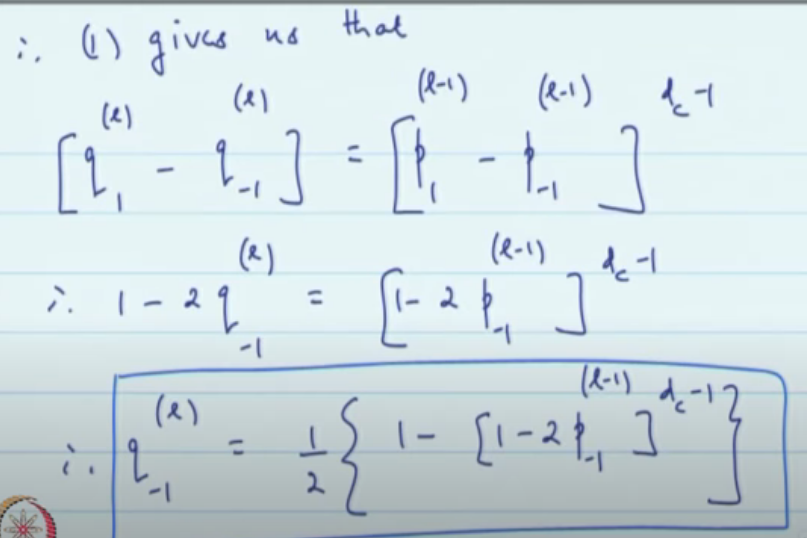 ∴ (1) gives us that
[q_1^{(l)} - q_{-1}^{(l)}] = [p_1^{(l-1)} - p_{-1}^{(l-1)}]^{d_c-1}
∴ 1 - 2q_{-1}^{(l)} = [1 - 2p_{-1}^{(l-1)}]^{d_c-1}
∴ q_{-1}^{(l)} = \frac{1}{2}{1 - [1 - 2p_{-1}^{(l-1)}]^{d_c-1}}